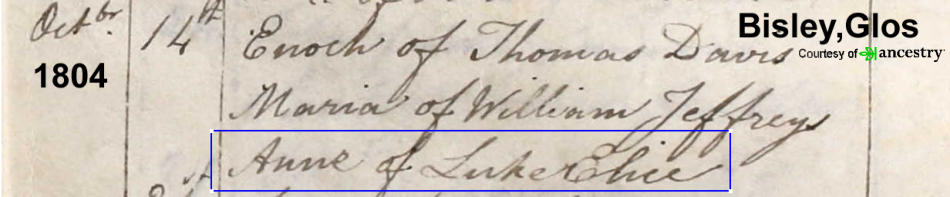 Octbr. 14th Enoch of Thomas Davis
Bisley,Glos
Courtesy of ancestry
1804
Maria of William Jeffreys
Anne of Luke